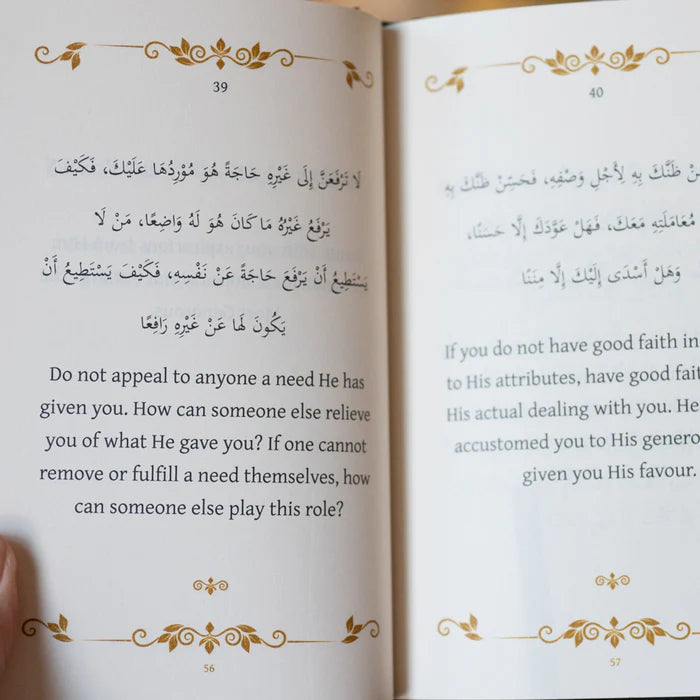 39
لَا تَرْفَعَنَّ إِلَى غَيْرِهِ حَاجَةً هُوَ مُوْرِدُهَا عَلَيْكَ، فَكَيْفَ
يَرْفَعُ غَيْرُهُ مَا كَانَ هُوَ لَهُ وَاضِعًا، مَنْ لَا
يَسْتَطِيعُ أَنْ يَرْفَعَ حَاجَةً عَنْ نَفْسِهِ، فَكَيْفَ يَسْتَطِيعُ أَنْ
يَكُونَ لَهَا عَنْ غَيْرِهِ رَافِعًا
Do not appeal to anyone a need He has
given you. How can someone else relieve
you of what He gave you? If one cannot
remove or fulfill a need themselves, how
can someone else play this role?
56
40
ظَنَّكَ بِهِ لِأَجْلِ وَصْفِهِ، فَحَسِّنْ ظَنَّكَ بِهِ
مُعَامَلَتِهِ مَعَكَ، فَهَلْ عَوَّدَكَ إِلَّا حَسَنًا،
وَهَلْ أَسْدَى إِلَيْكَ إِلَّا مِنَنًا
If you do not have good faith in
to His attributes, have good
His actual dealing with you. He
accustomed you to His
given you His favour.
57